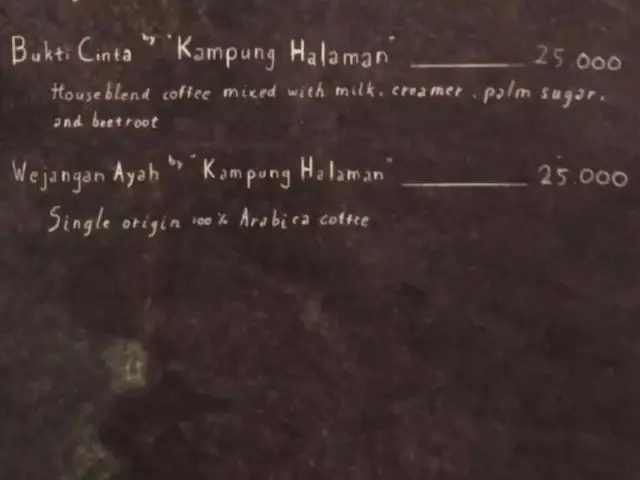 Bukti Cinta by "Kampung Halaman" 25.000
Houseblend coffee mixed with milk, creamer, palm sugar,
and beetroot
Wejangan Ayah by "Kampung Halaman" 25.000
Single origin 100% Arabica coffee